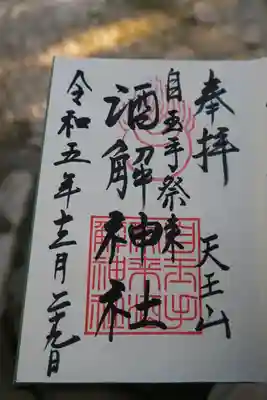 奉拝 天王山
自玉手祭来
酒解神社
令和五年十二月二十九日